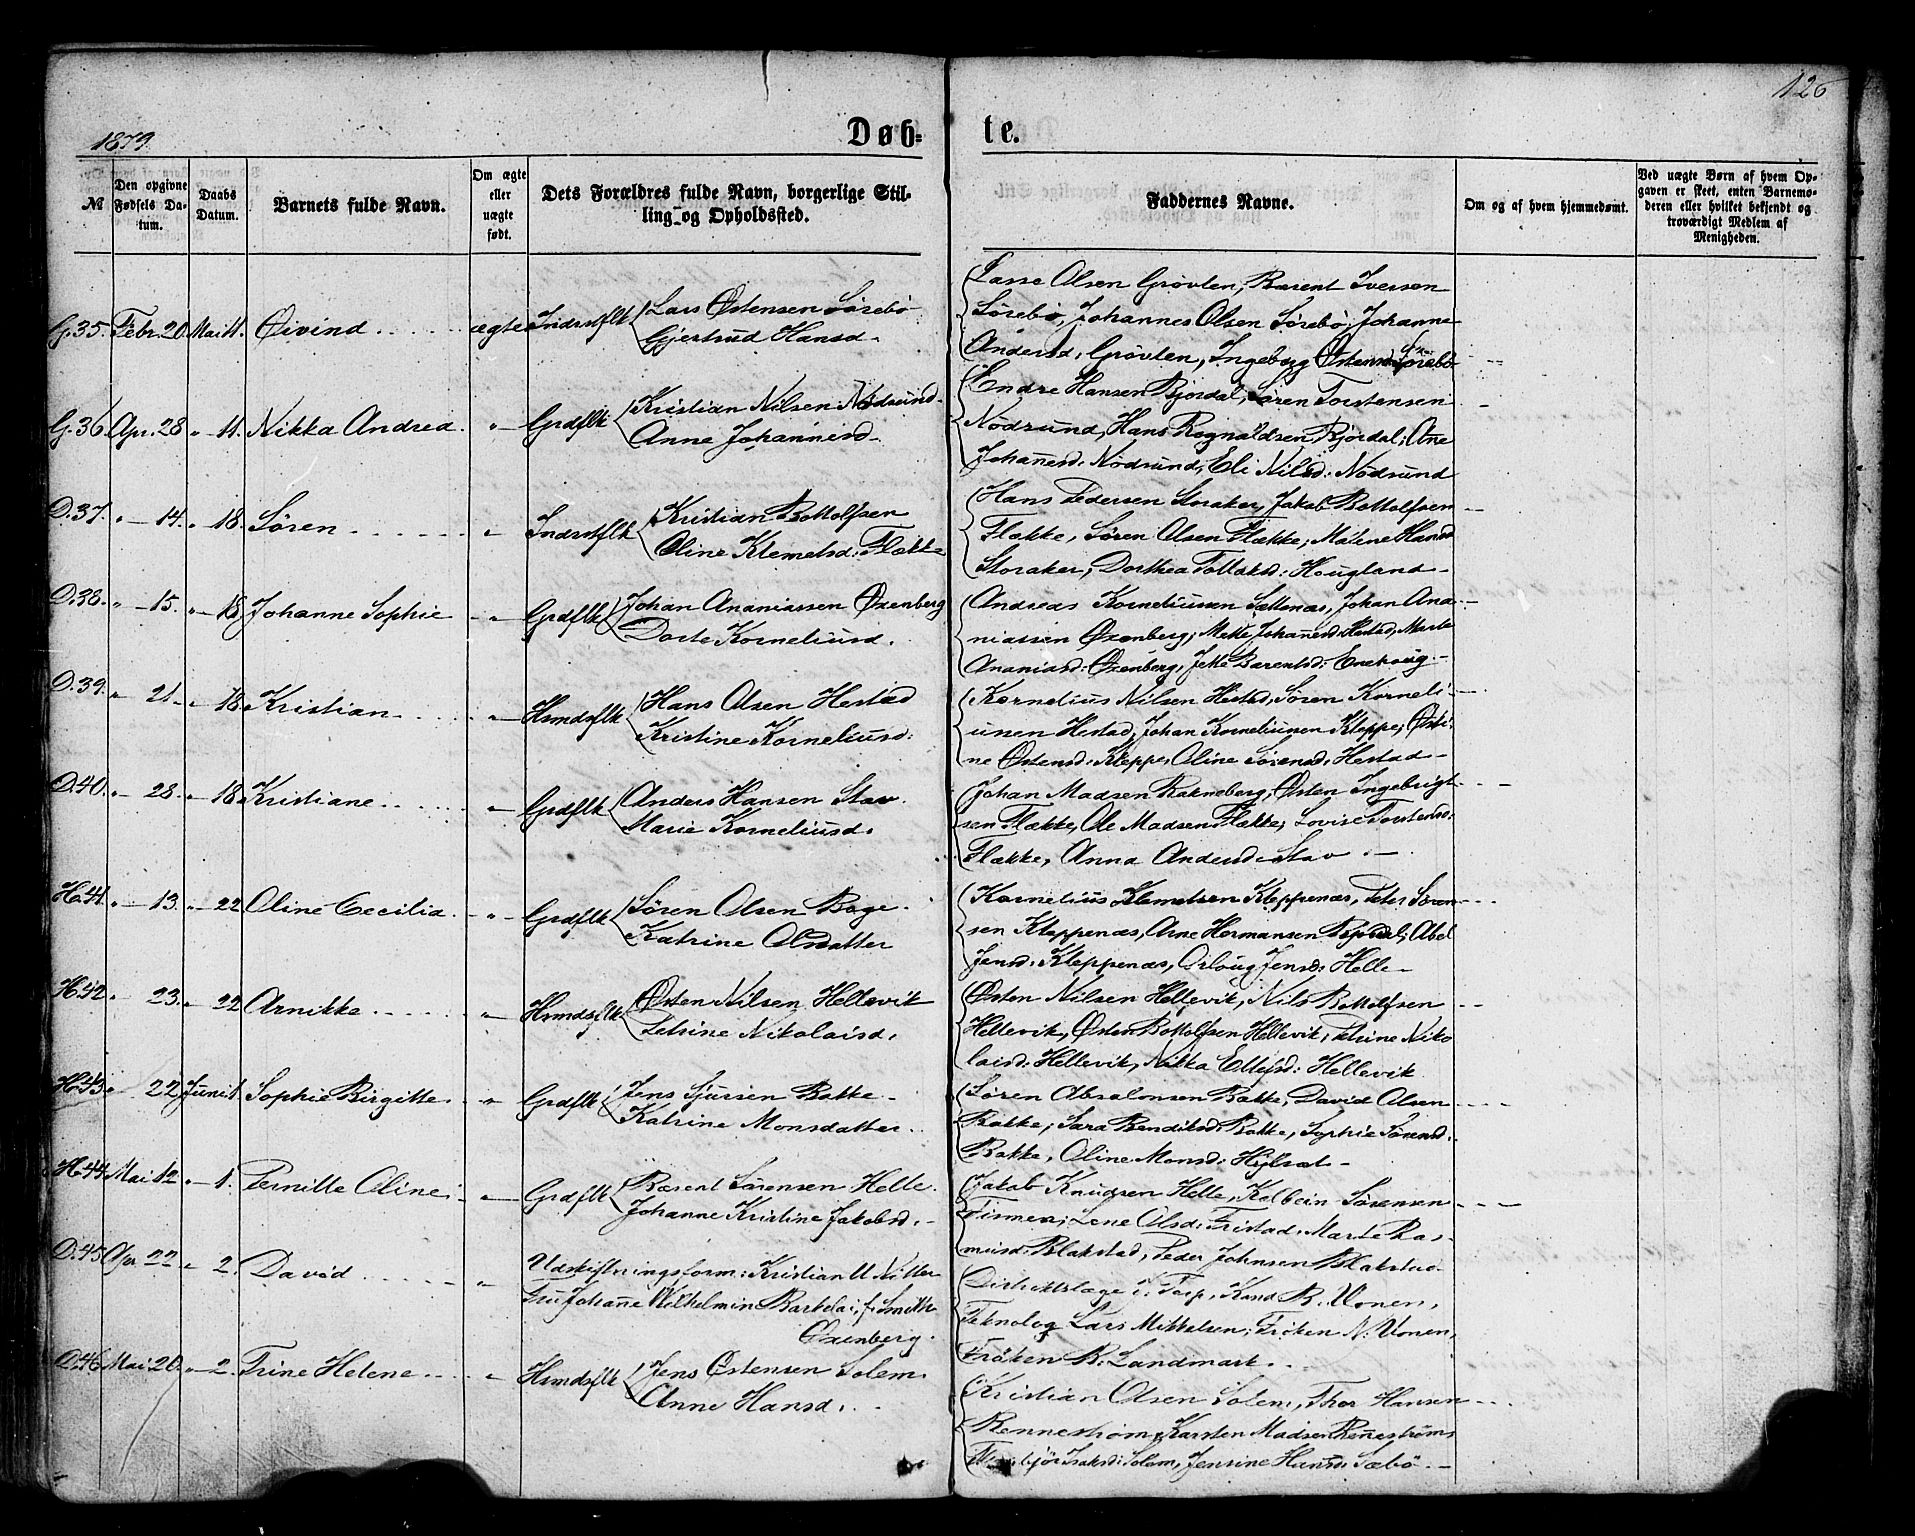 126
1879.
Døb-
te.
№
Den opgivne Fødsels Datum.
Daabs Datum.
Barnets fulde Navn.
Om ægte eller uægte født.
Dets Forældres fulde Navn, borgerlige Stilling og Opholdsted.
Faddernes Navne.
Om og af hvem hjemmedømt.
Ved uægte Børn af hvem Opgaven er skeet, enten Barnemoderen eller hvilket bekjendt og troværdigt Medlem af Menigheden.
G.35. Febr. 20. Mai 11. Øivind ægte Indrstflk Lars Østensen Sörebö
Gjertrud Hansd.
Lasse Olsen Grövlen, Barent Iversen
Sörebö, Johannes Olsen Sörebö, Johanne
Andersd. Grövlen, Ingeborg Østensd. Sörebö
G.36. Apr. 28 " - 11. Nikka Andrea " Grdflk Kristian Nilsen Nödsund.
Anne Johannesd.
Endre Hansen Bjordal, Sören Torstensen
Nödsund, Hans Rognaldsen Bjordal, Ane
Johanesd. Nödsund, Eli Nilsd: Nödsund
D.37. " - 14. " 18. Sören " Indrstflk Kristian Bottolfsen
Oline Klemetsd: Flække
Hans Pedersen Storaker, Jakob Bottolfsen
Flække, Sören Olsen Flække, Malene Hansd
Storaker, Dorthea Tollaksd: Hougland
D.38. " - 15. " - 18 Johanne Sophie " Grdflk Johan Ananiassen Oxenberg
Dorte Korneliusd.
Andreas Korneliussen Sættenæs, Johan Ana-
niassen Oxenberg, Mette Johanesd: Hestad, Marte
Ananiasd: Oxenberg, Jette Barentsd: Enehoug
D.39. " 21. " 18 Kristian " Hsmdsflk Hans Olsen Hestad
Kristine Korneliusd:
Kornelius Nilsen Hestad, Sören Korneli-
usen Hestad, Johan Korneliussen Kleppe, Østi-
ne Østensd: Kleppe, Oline Sörensd: Hestad
D.40. " 28. " - 18 Kristiane " Grdflk Anders Hansen Stav.
Marie Korneliusd.
Johan Madsen Rakneberg, Østen Ingebrigt-
sen Flække, Ole Madsen Flække, Lovise Torstensd:
Flække, Anna Andersd Stav.
H.41. " - 13. " - 22 Oline Cecilia " Grdflk Sören Olsen Boge.
Katrine Olsdatter
Kornelius Klemetsen Kleppenæs, Peter Sören-
sen Kleppenæs, Arne Hermansen, Abel
Jensd: Kleppenæs, Oriloug Jensd: Helle
H.42 " 23. " 22 Arnikke " Hsmdsflk Østen Nilsen Hellevik
Petrine Nikolaisd.
Østen Nilsen Hellevik, Nils Bottolfsen
Hellevik, Østen Bottolfsen Hellevik, Petrine Niko
laisd: Hellevik, Nikka Ellefsd: Hellevik
H.43. " 22 Juni 1. Sophie Birgitte " Grdflk Jens Sjursen Bakke
Katrine Monsdatter
Sören Absalonsen Bakke, David Olsen
Bakke, Sara Bendiksd: Bakke, Sophie Sörensd.
Bakke, Oline Monsd:
H.44. Mai 12 " - 1. Pernille Oline " Grdflk Barent Sörensen Helle.
Johanne Kristine Jakobsd.
Jakob Knudsen Helle, Kolbein Sörensen
Timmen, Lene Olsd: Fristad, Marte Ras-
musd: Blakstad, Peder Johnsen Blakstad
D.45 Apr 22 " 2. David " Udskiftningsform: Kristian U Nitter
Fru Johane Vilhelmin Barbela, f. Smith
Oxenberg.
Distriktslæge Torp, Kand B. Vonen,
Teknolog Lars Mikkelsen, Fröken N. Vonen,
Fröken B. Landmark.
D.46 Mai 20. " - 2. Trine Helene " Hsmdsflk Jens Østensen Solem
Anne Hansd.
Kristian Olsen Solem, Thor Hansen
Renneström, Karsten Madsen Reneström,
Isaksd: Solem, Jensine Hansd: Sæbö.